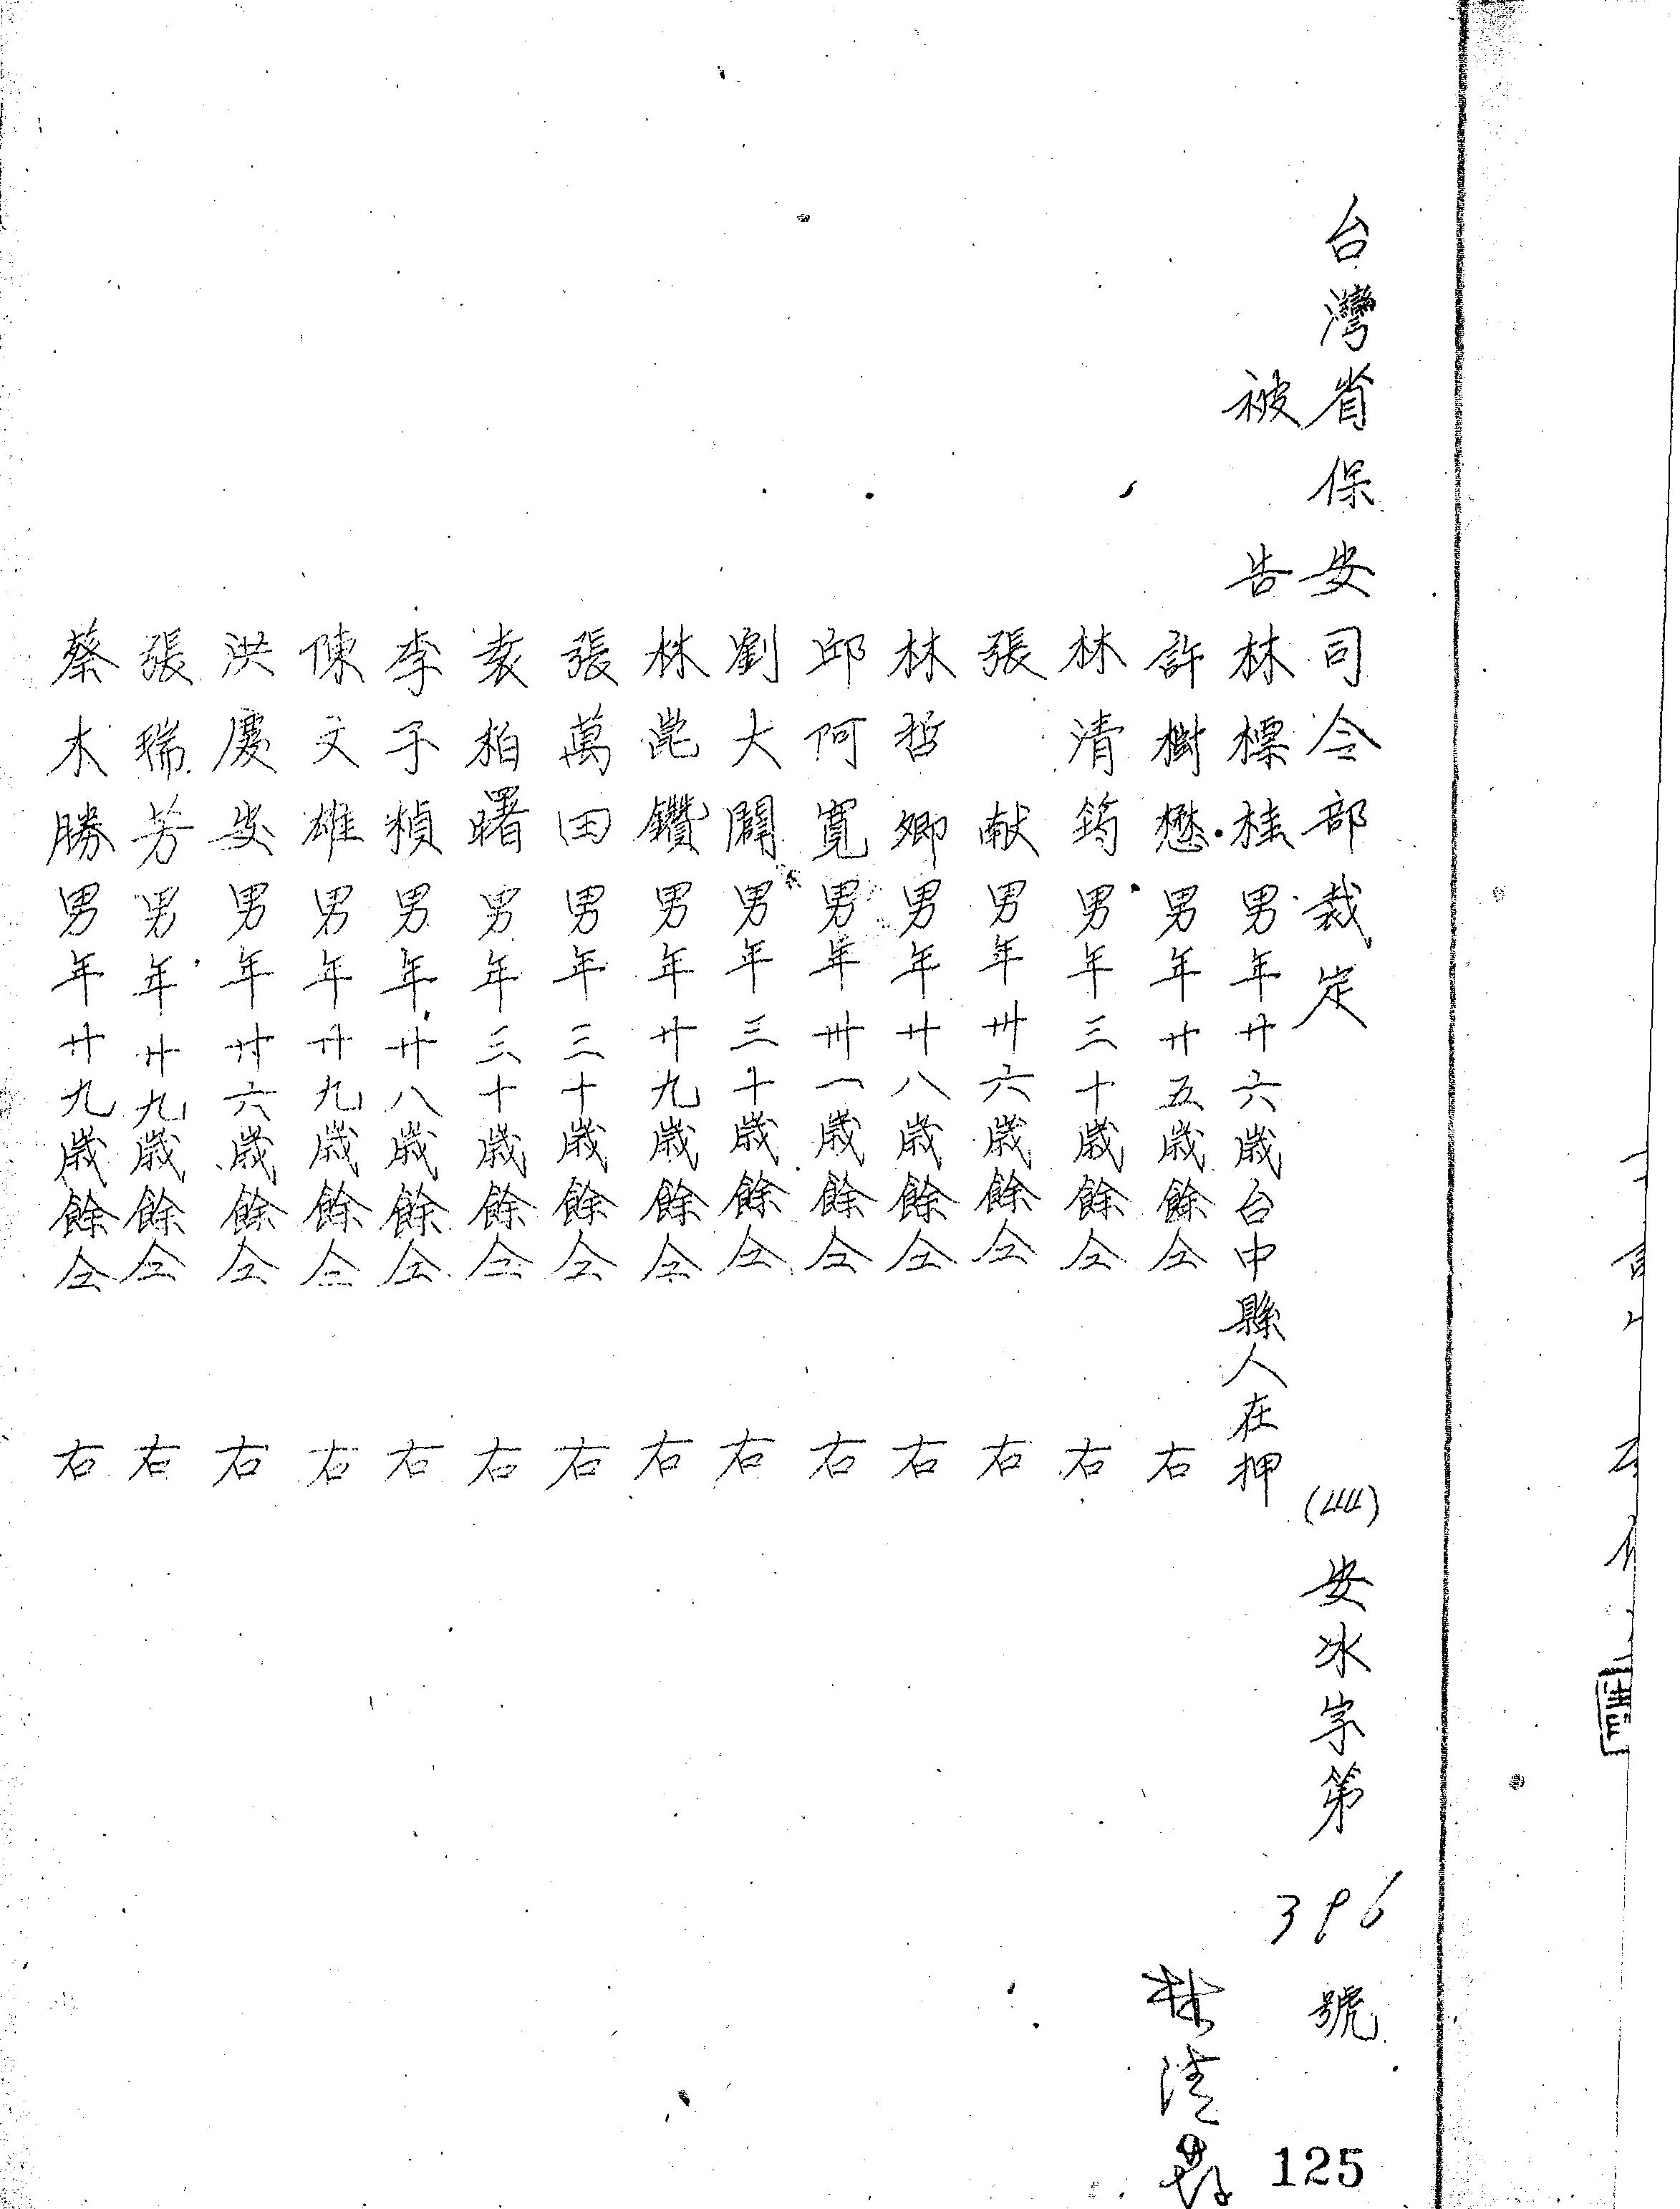 台灣省保安司令部裁定 (卌) 安氷字第 396 號
被告 林標桂 男 年廿六歲 台中縣人 在押
許樹懋 男 年廿五歲 餘仝右
林清筠 男 年三十歲 餘仝右
張献 男 年卅六歲 餘仝右
林哲卿 男 年廿八歲 餘仝右
邱阿寬 男 年卅一歲 餘仝右
劉大闊 男 年三十歲 餘仝右
林鑽 男 年廿九歲 餘仝右
張萬田 男 年三十歲 餘仝右
袁柏曙 男 年三十歲 餘仝右
李子楨 男 年廿八歲 餘仝右
陳文雄 男 年廿九歲 餘仝右
洪慶安 男 年廿六歲 餘仝右
張瑞芳 男 年廿九歲 餘仝右
蔡木勝 男 年廿九歲 餘仝右
125